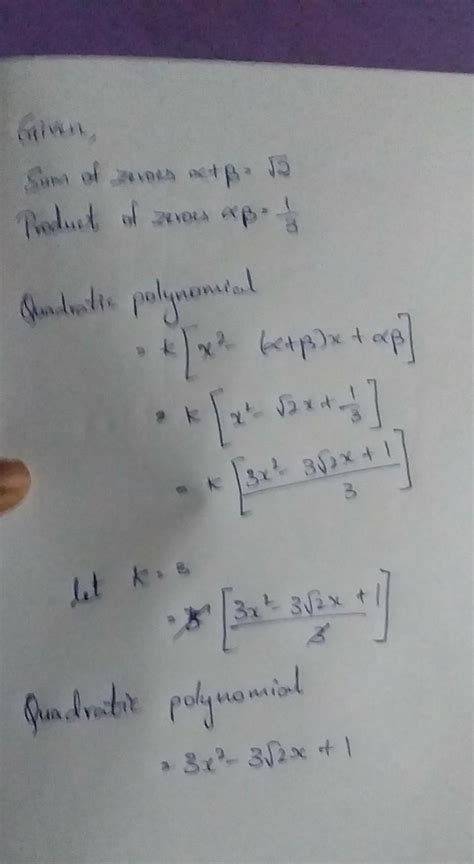 Given,
Sum of zeroes α+β = √2
Product of zeroes αβ = 1/3
Quadratic polynomial
= k[x² - (α+β)x + αβ]
= k[x² - √2x + 1/3]
= k[(3x² - 3√2x + 1)/3]
let k = 3
= 3[(3x² - 3√2x + 1)/3]
Quadratic polynomial
= 3x² - 3√2x + 1